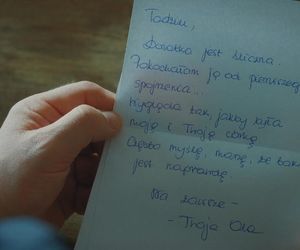 Tadziu,
Dorotka jest śliczna.
Pokochałam ją od pierwszego
spojrzenia...
Wygląda tak, jakby była
moją i Twoją córką.
Często myślę, marzę, że tak
jest naprawdę.
Na zawsze -
- Twoja Ola